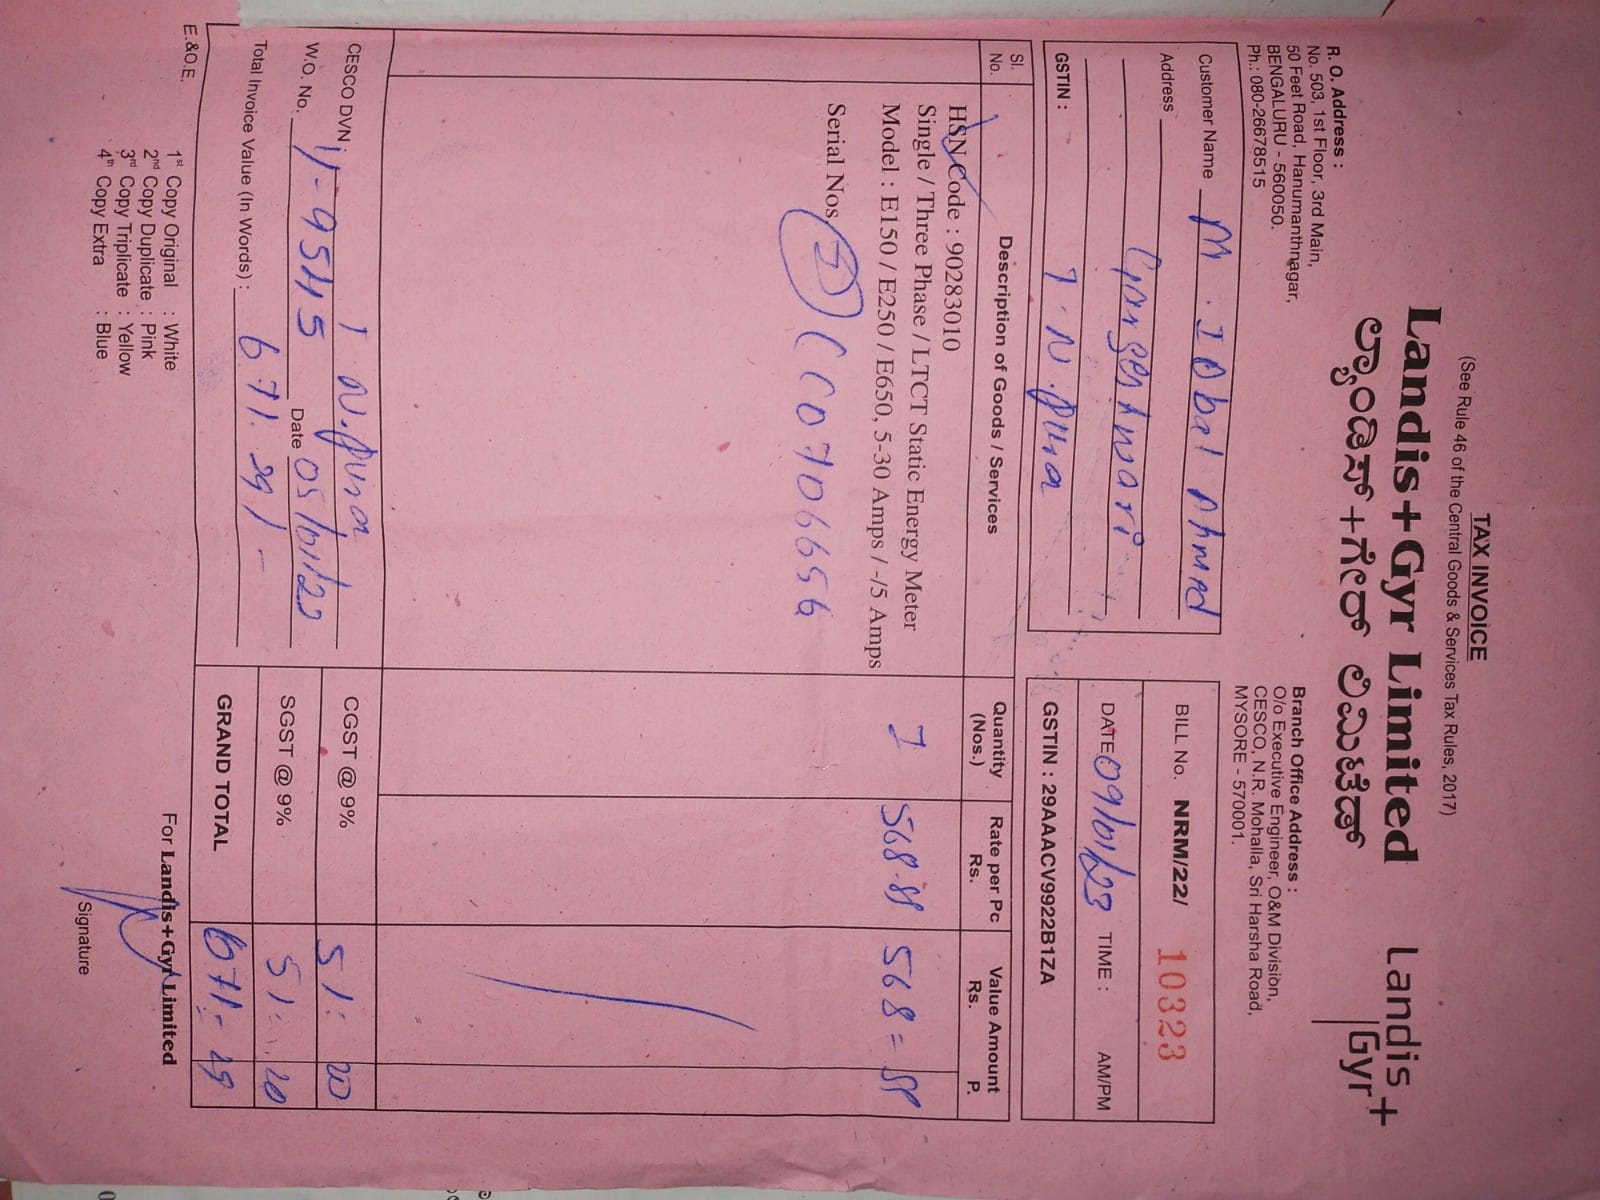 TAX INVOICE
(See Rule 46 of the Central Goods & Services Tax Rules, 2017)
Landis+Gyr Limited
ಲ್ಯಾಂಡಿಸ್+ಗೇರ್ ಲಿಮಿಟೆಡ್
Landis+
Gyr
R. O. Address :
No. 503, 1st Floor, 3rd Main,
50 Feet Road, Hanumanthnagar,
BENGALURU - 560050.
Ph.: 080-26678515
Branch Office Address :
O/o Executive Engineer, O&M Division,
CESCO, N.R. Mohalla, Sri Harsha Road,
MYSORE - 570001.
Customer Name M. Iqbal Ahmed
Address Gangeshwari
T.N.pura
GSTIN :
BILL No. NRM/22/ 10323
DATE 09/01/23 TIME : AM/PM
GSTIN : 29AAACV9922B1ZA
Sl. No. Description of Goods / Services Quantity (Nos.) Rate per Pc Rs. Value Amount Rs. P.
HSN Code : 90283010
Single / Three Phase / LTCT Static Energy Meter
Model : E150 / E250 / E650, 5-30 Amps / -/5 Amps 1 568.88 568= 88
Serial Nos. C0706656
CESCO DVN : T.N.pura
W.O. No. 11-9545 Date 05/01/23
Total Invoice Value (In Words) : 671.29/-
CGST @ 9% 51= 20
SGST @ 9% 51= 20
GRAND TOTAL 671= 29
E.&O.E.
1st Copy Original : White
2nd Copy Duplicate : Pink
3rd Copy Triplicate : Yellow
4th Copy Extra : Blue
For Landis+Gyr Limited
Signature